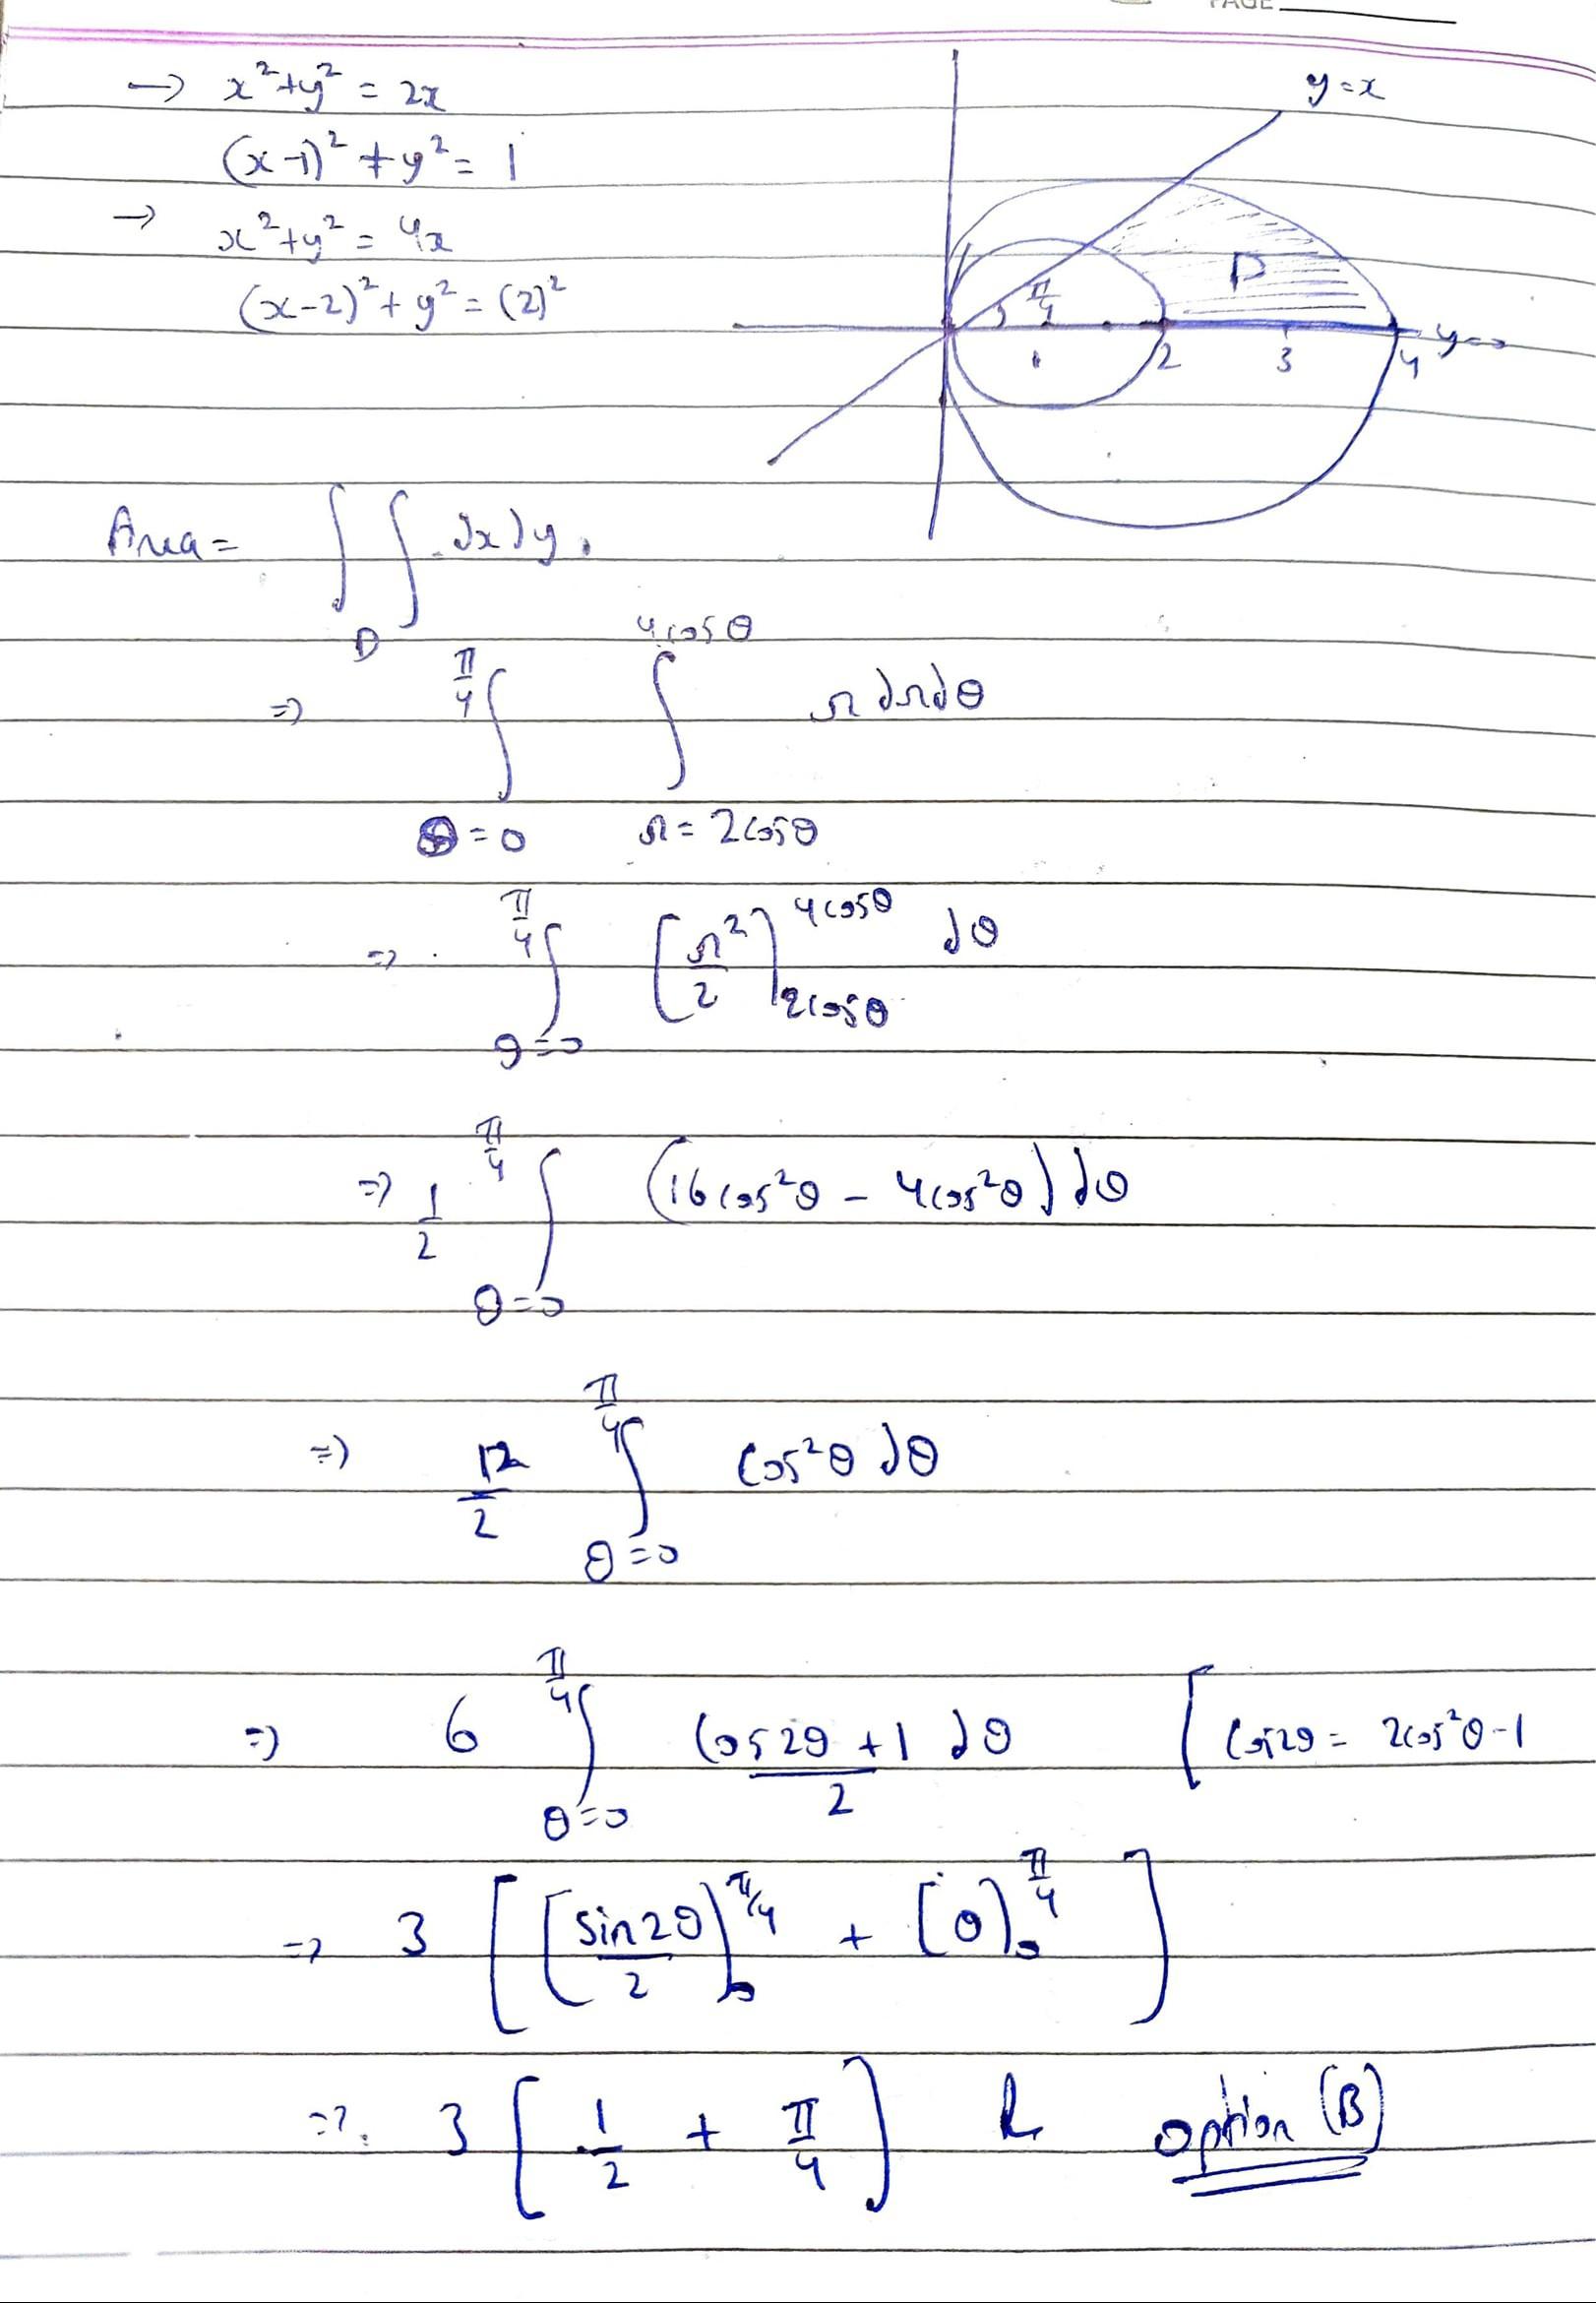 PAGE
→ x² + y² = 2x
(x-1)² + y² = 1
→ x² + y² = 4x
(x-2)² + y² = (2)²
y=x
D
π/4
1 2 3 4 y=0
Area = ∫∫_D dx dy.
⇒ ∫_{θ=0}^{π/4} ∫_{r=2cosθ}^{4cosθ} r dr dθ
⇒ ∫_{θ=0}^{π/4} [r²/2]_{2cosθ}^{4cosθ} dθ
⇒ 1/2 ∫_{θ=0}^{π/4} (16cos²θ - 4cos²θ) dθ
⇒ 12/2 ∫_{θ=0}^{π/4} cos²θ dθ
⇒ 6 ∫_{θ=0}^{π/4} (cos2θ + 1)/2 dθ [cos2θ = 2cos²θ-1
⇒ 3 [[sin2θ/2]_0^{π/4} + [θ]_0^{π/4}]
⇒ 3 [1/2 + π/4] option (B)